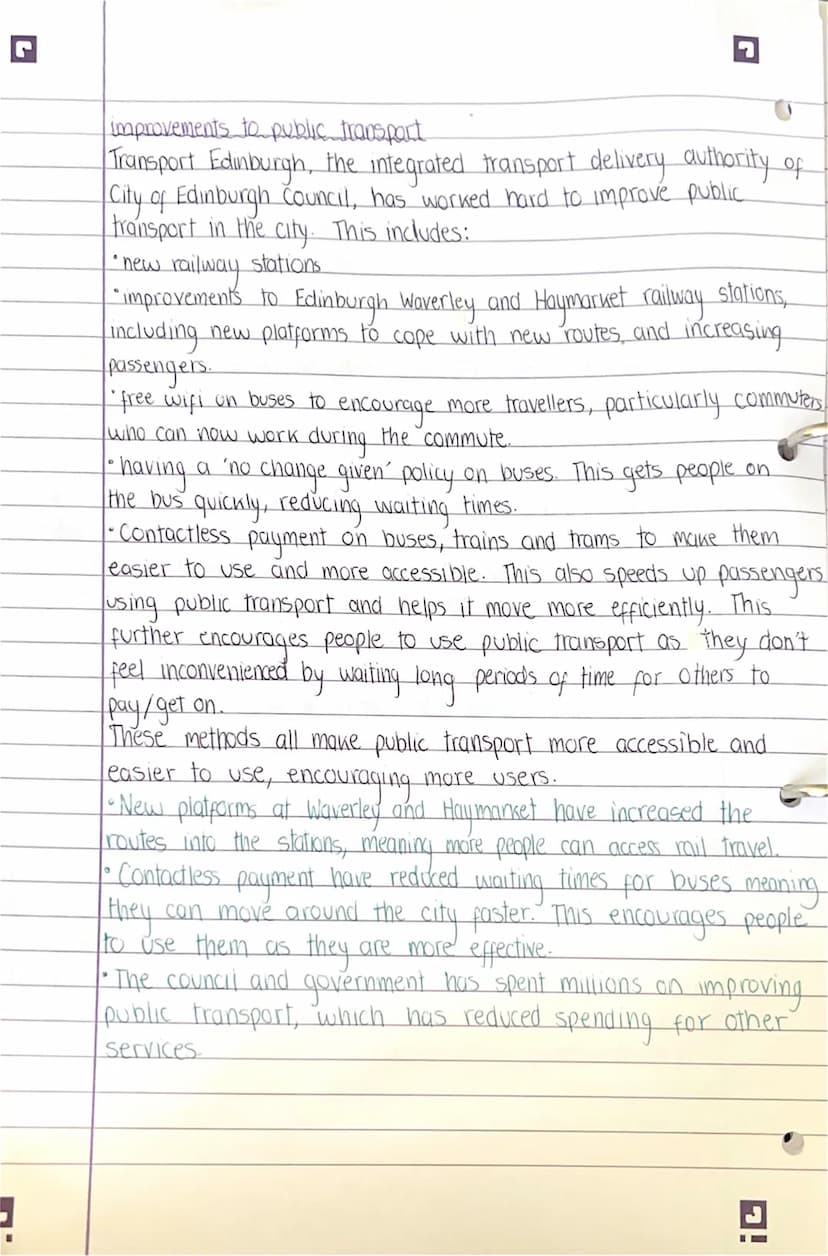 improvements to public transport
Transport Edinburgh, the integrated transport delivery authority of
City of Edinburgh Council, has worked hard to improve public
transport in the city. This includes:
•new railway stations
•improvements to Edinburgh Waverley and Haymarket railway stations,
including new platforms to cope with new routes, and increasing
passengers.
•free wifi on buses to encourage more travellers, particularly commuters
who can now work during the commute.
•having a 'no change given' policy on buses. This gets people on
the bus quickly, reducing waiting times.
•Contactless payment on buses, trains and trams to make them
easier to use and more accessible. This also speeds up passengers
using public transport and helps it move more efficiently. This
further encourages people to use public transport as they don't
feel inconvenienced by waiting long periods of time for others to
pay/get on.
These methods all make public transport more accessible and
easier to use, encouraging more users.
•New platforms at Waverley and Haymarket have increased the
routes into the stations, meaning more people can access rail travel.
•Contactless payment have reduced waiting times for buses meaning
they can move around the city faster. This encourages people
to use them as they are more effective.
•The council and government has spent millions on improving
public transport, which has reduced spending for other
services.